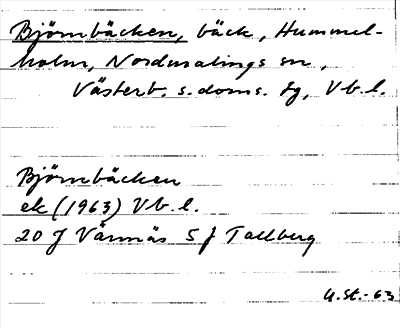 Björnbäcken, bäck, Hummel-
holm, Nordmalings sn,
Västerb. s. doms. tg, Vb. l.
Björnbäcken
ek (1963) Vb. l.
20 J Vännäs 5 f Tallberg
U.St.-63